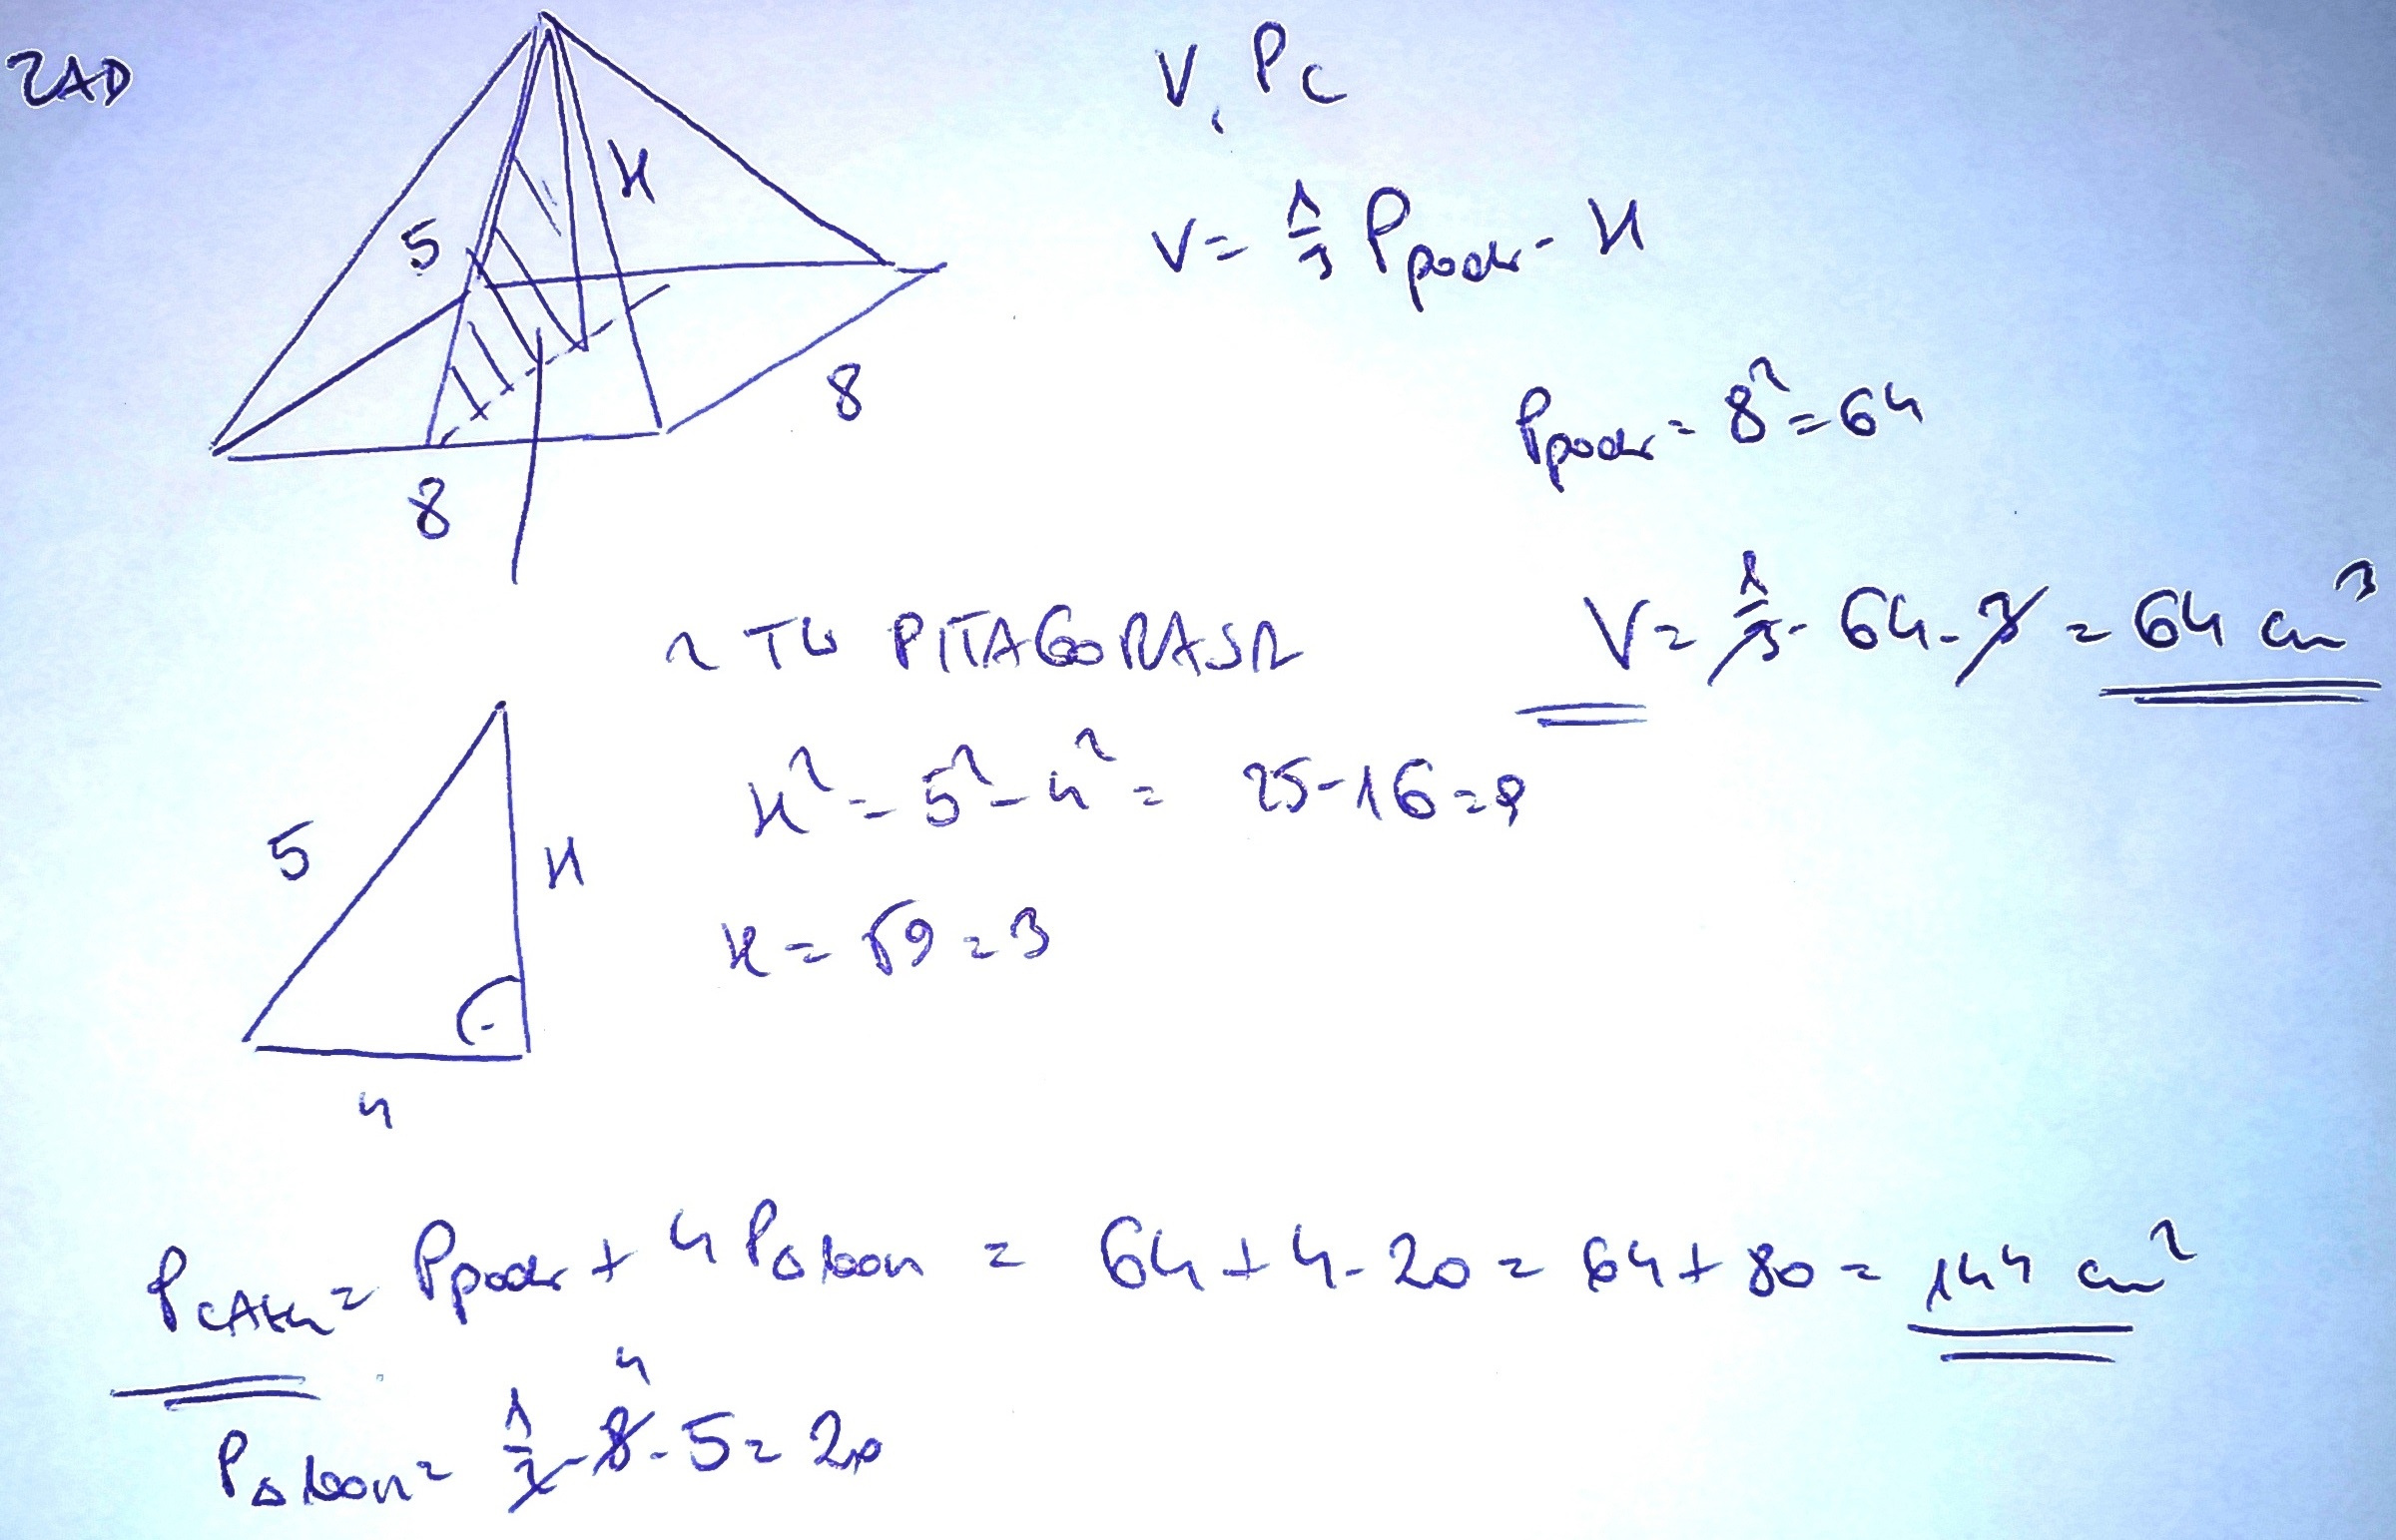 ZAD
V, Pc
5
H
V = 1/3 Ppodst · H
8
8
Ppodst = 8² = 64
V = 1/3 · 64 · 3 = 64 cm³
z TW PITAGORASA
5
H
4
H² = 5² - 4² = 25 - 16 = 9
H = √9 = 3
PCAŁK = Ppodst + 4 P△ bocz = 64 + 4 · 20 = 64 + 80 = 144 cm²
4
P△ bocz = 1/2 · 8 · 5 = 20